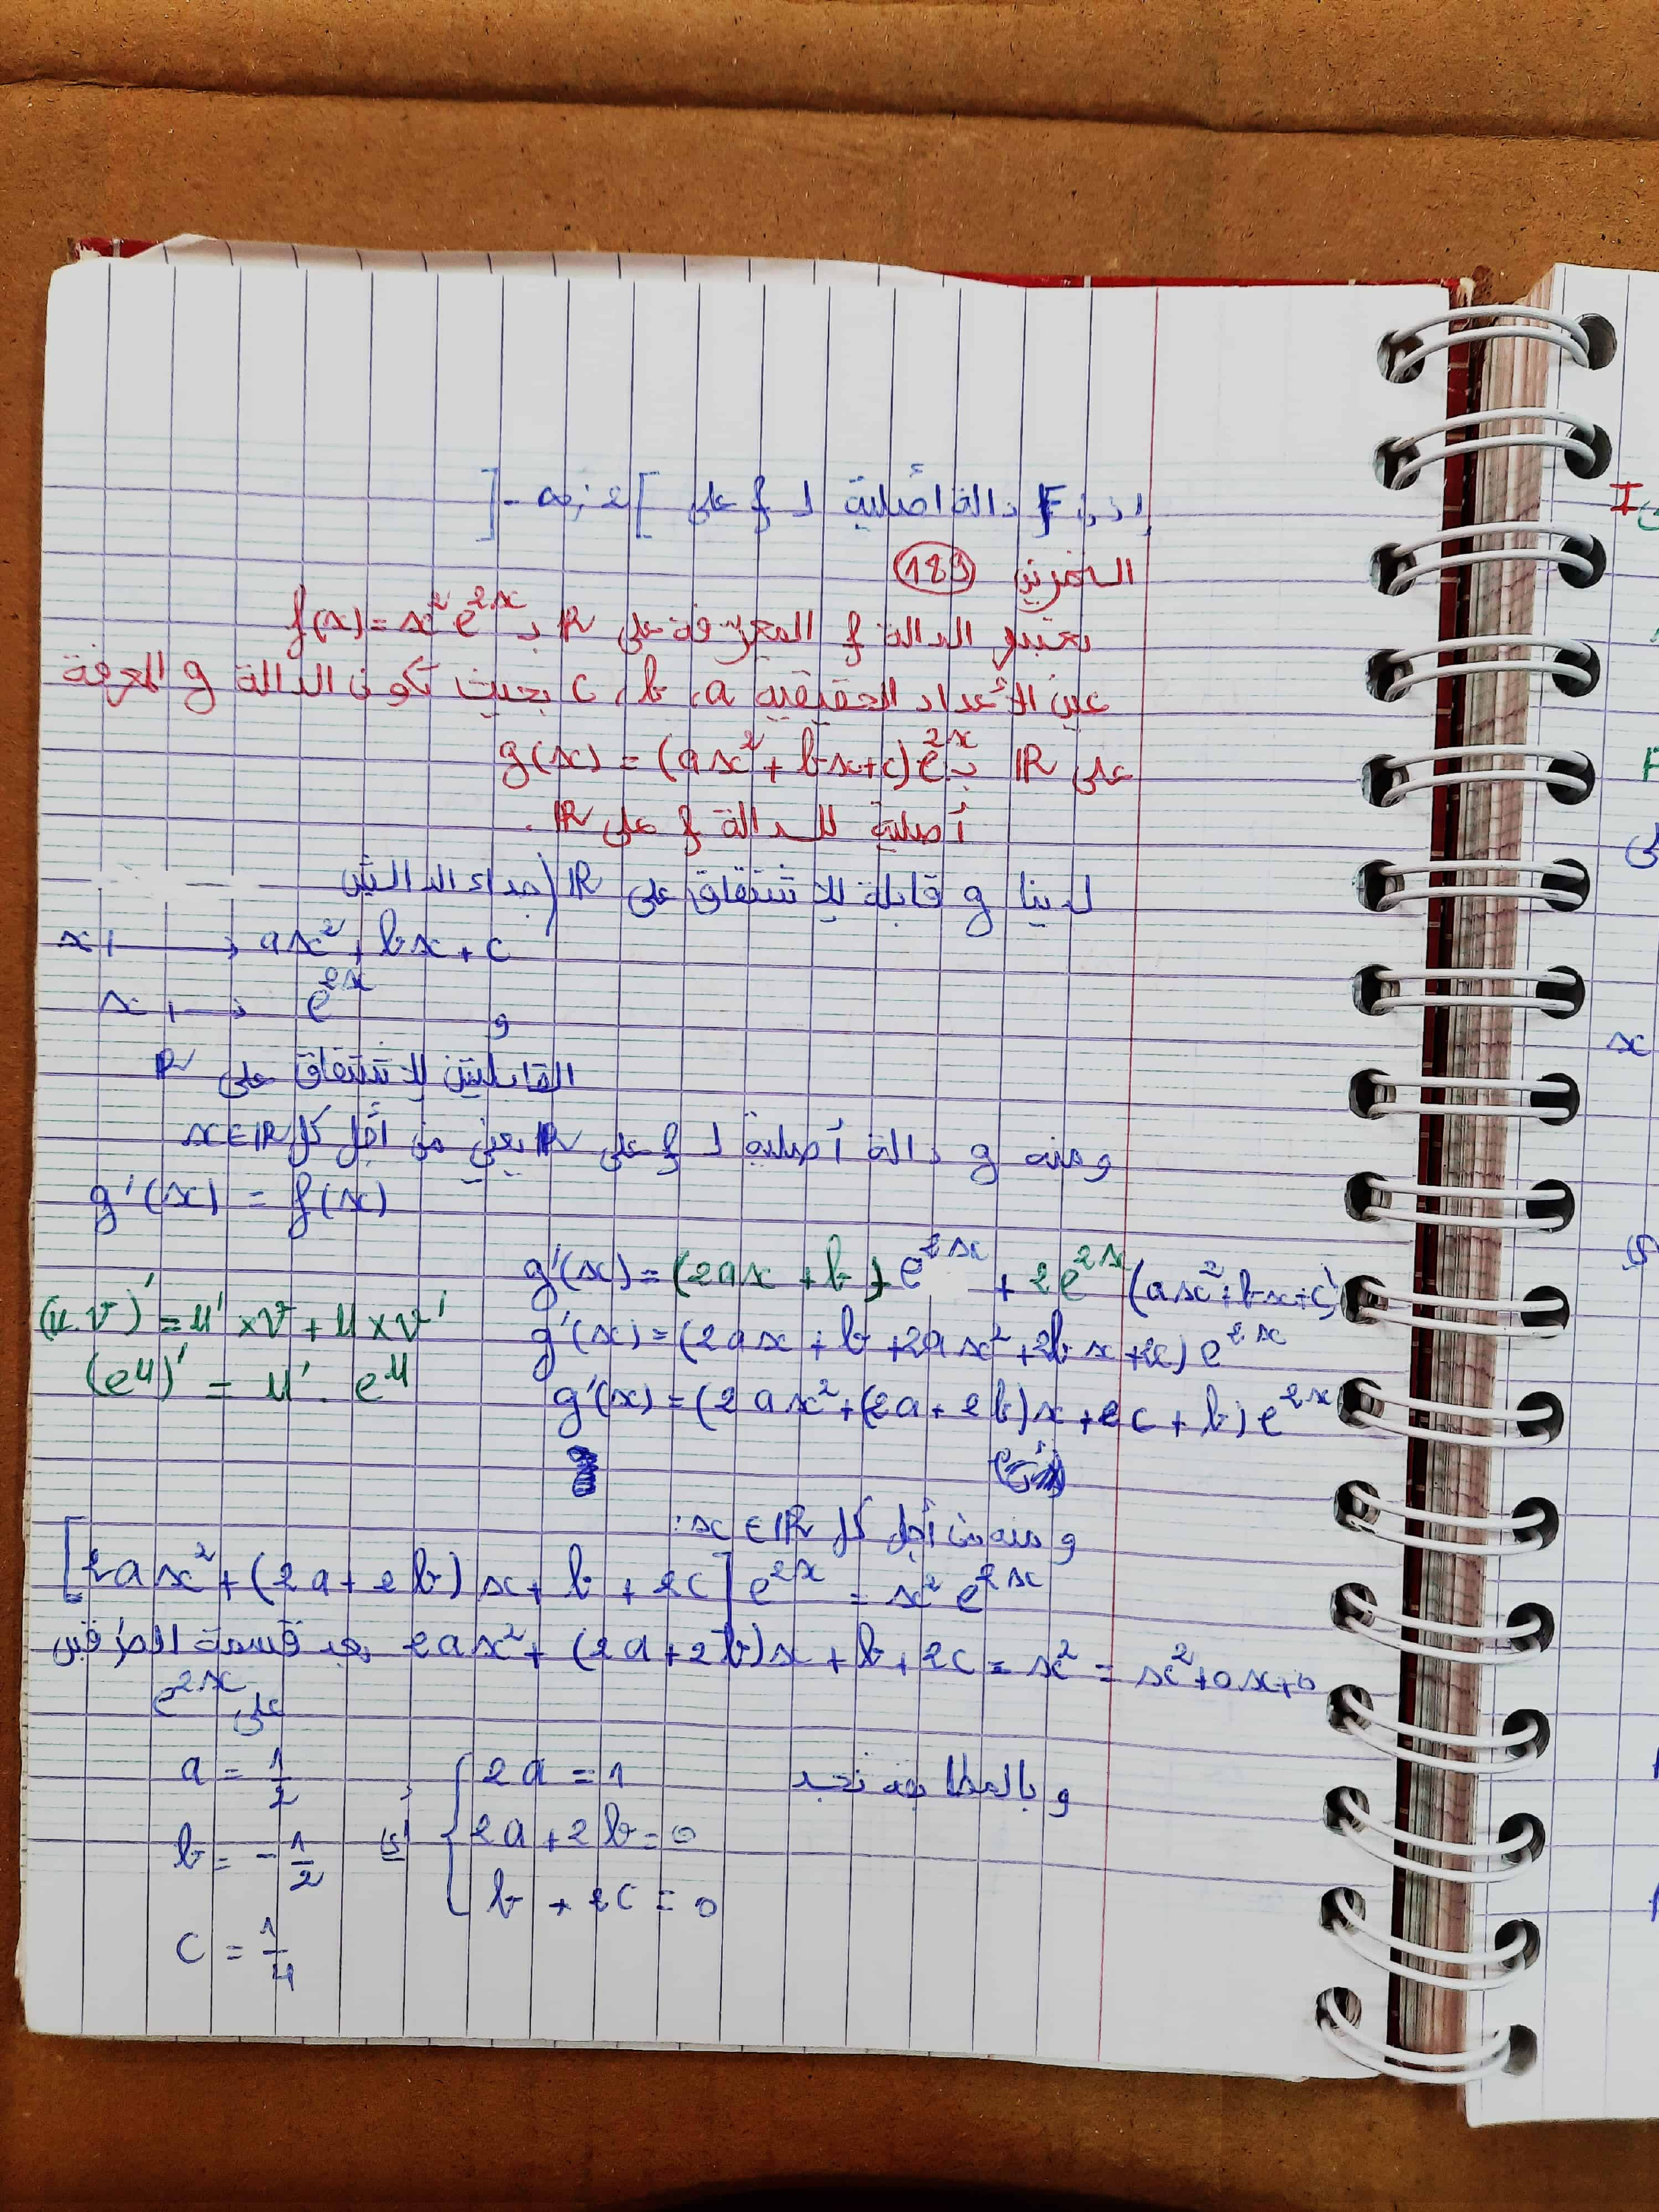 إذن F دالة أصلية لـ f على ]-∞;2[
التمرين 183
نعتبر الدالة f المعرفة على ℝ بـ f(x) = x² e^{2x}
عين الأعداد الحقيقية a، b، c بحيث تكون الدالة g المعرفة
على ℝ بـ g(x) = (ax² + bx + c) e^{2x}
أصلية للدالة f على ℝ.
لدينا g قابلة للإشتقاق على ℝ (جداء الدالتين
x ⟼ ax² + bx + c
و x ⟼ e^{2x}
القابلتين للإشتقاق على ℝ
ومنه g دالة أصلية لـ f على ℝ يعني من أجل كل x∈ℝ
g'(x) = f(x)
g'(x) = (2ax + b) e^{2x} + 2e^{2x} (ax² + bx + c)
(u.v)' = u' × v + u × v'
g'(x) = (2ax + b + 2ax² + 2bx + 2c) e^{2x}
(e^u)' = u' . e^u
g'(x) = (2ax² + (2a + 2b)x + 2c + b) e^{2x}
ومنه من أجل كل x∈ℝ:
[2ax² + (2a + 2b)x + b + 2c] e^{2x} = x² e^{2x}
2ax² + (2a + 2b)x + b + 2c = x² = x² + 0x + 0 بعد قسمة الطرفين
على e^{2x}
وبالمطابقة نجد { 2a = 1 ; a = 1/2
2a + 2b = 0 أي b = -1/2
b + 2c = 0
c = 1/4